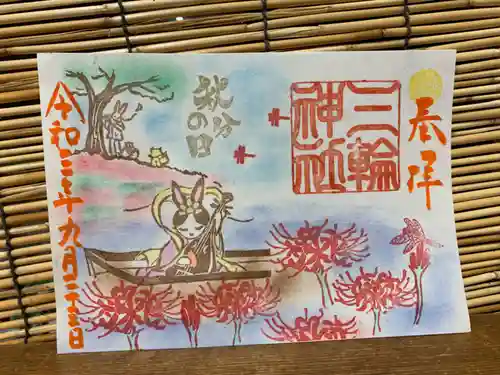 奉拝
三輪
神社
秋分
の日
令和三年九月二十三日